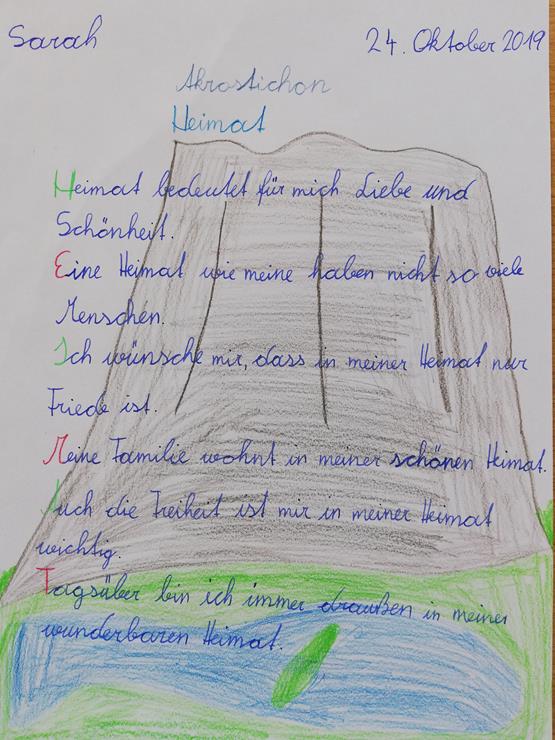 Sarah
24. Oktober 2019
Akrostichon
Heimat
Heimat bedeutet für mich Liebe und
Schönheit.
Eine Heimat wie meine haben nicht so viele
Menschen.
Ich wünsche mir, dass in meiner Heimat nur
Friede ist.
Meine Familie wohnt in meiner schönen Heimat.
Auch die Freiheit ist mir in meiner Heimat
wichtig.
Tagsüber bin ich immer draußen in meiner
wunderbaren Heimat.